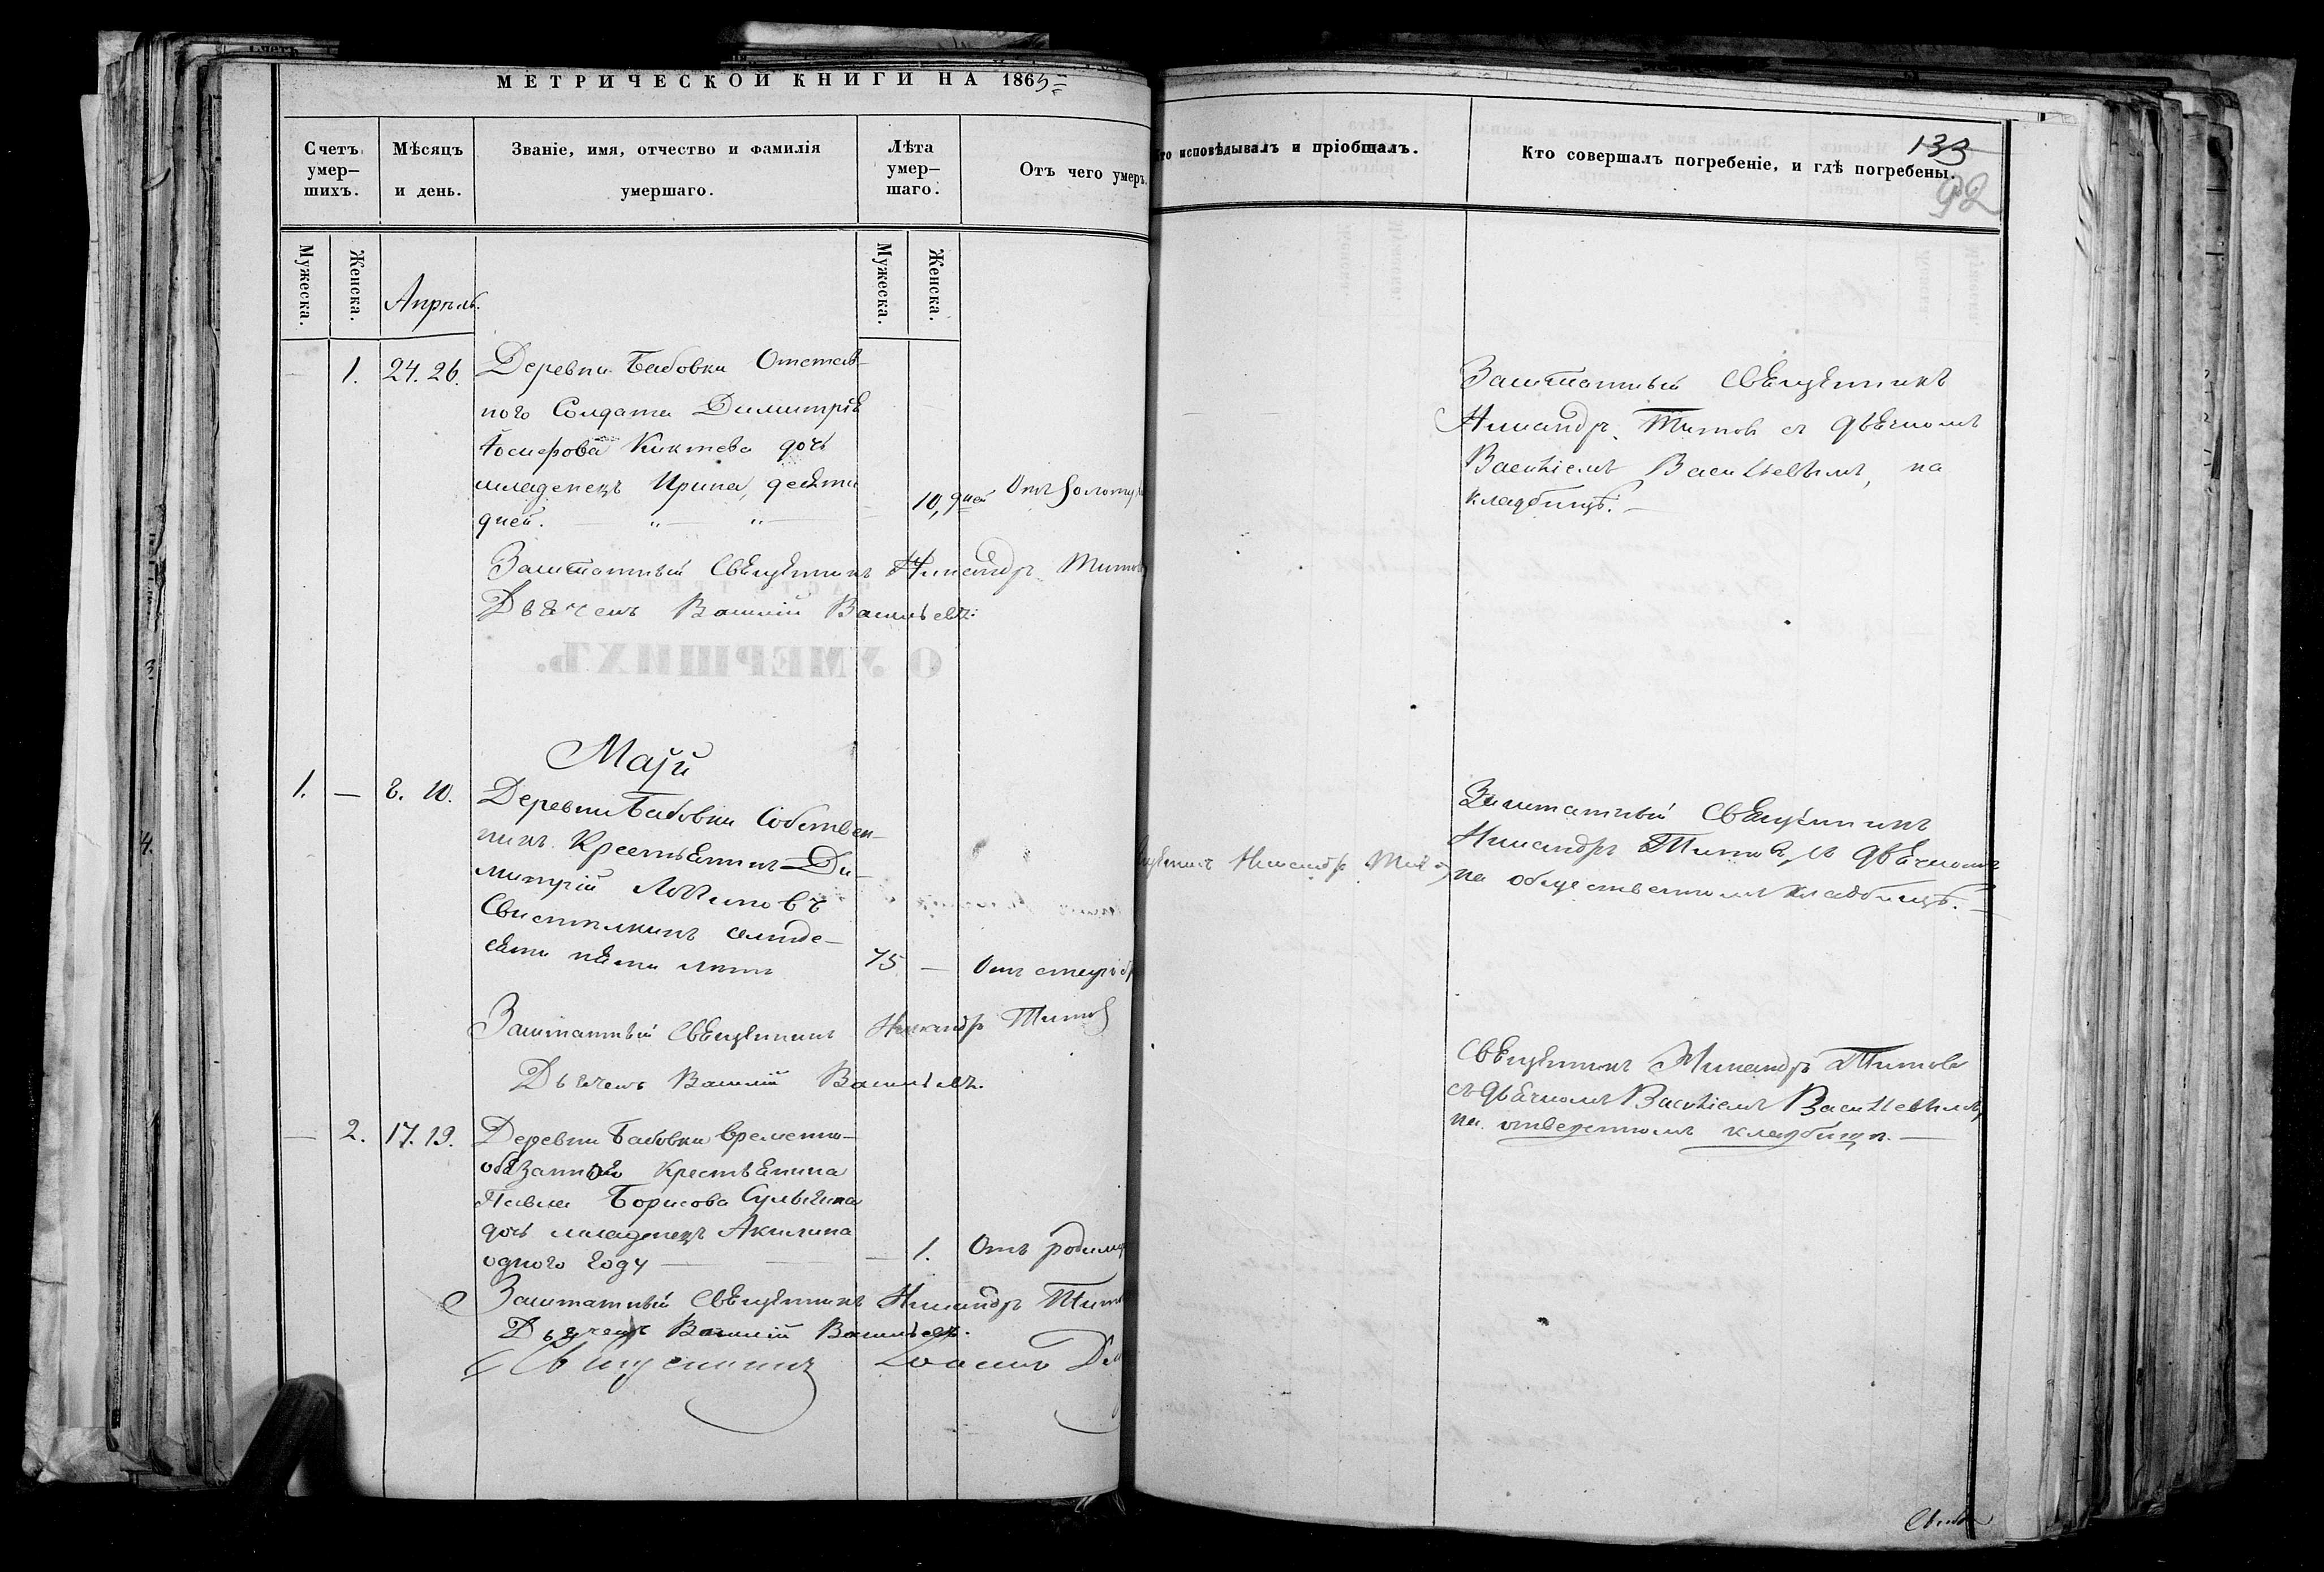 МЕТРИЧЕСКОЙ КНИГИ НА 1865
Счетъ умер–шихъ.
Мѣсяцъ и день.
Званіе, имя, отчество и фамилія умершаго.
Лѣта умер–шаго.
Отъ чего умеръ.
Мужеска.
Женска.
Мужеска.
Женска.
Апрѣль.
1. 24. 26. Деревни Бабовки Отстав–
ного Солдата Димитрія
дочь
младенецъ Ирина, десяти
дней. 10, дней
Заштатный Священникъ Никандръ Титовъ
Дьячекъ Василій Васильевъ.
О УМЕРШИХЪ.
Маій
1. — 8. 10. Деревни Бабовки Собствен–
никъ Крестьянинъ Ди–
митрій Логиновъ
Свистилкинъ семиде–
сяти пяти лѣтъ 75 — Отъ старо
Заштатный Священникъ Никандръ Титов
Дьячекъ Василій Васильевъ.
— 2. 17. 19. Деревни Бабовки временно–
обязаннаго Крестьянина
Павла Борисова
дочь младенецъ Акилина
одного году — — 1. Отъ родимц
Заштатный Священникъ Никандръ Тит
Дьячекъ Василій Васильевъ.
Священникъ Іоаннъ
исповѣдывалъ и пріобщалъ.
Кто совершалъ погребеніе, и гдѣ погребены.
133
92
Заштатный Священникъ
Никандръ Титовъ съ дьячкомъ
Василіемъ Васильевымъ, на
кладбищѣ.
Никандръ
Заштатный Священникъ
Никандръ Титовъ, съ дьячкомъ
на общественномъ кладбищѣ.
Священникъ Никандръ Титовъ
съ дьячкомъ Василіемъ Васильевымъ,
на отведенномъ кладбищѣ.